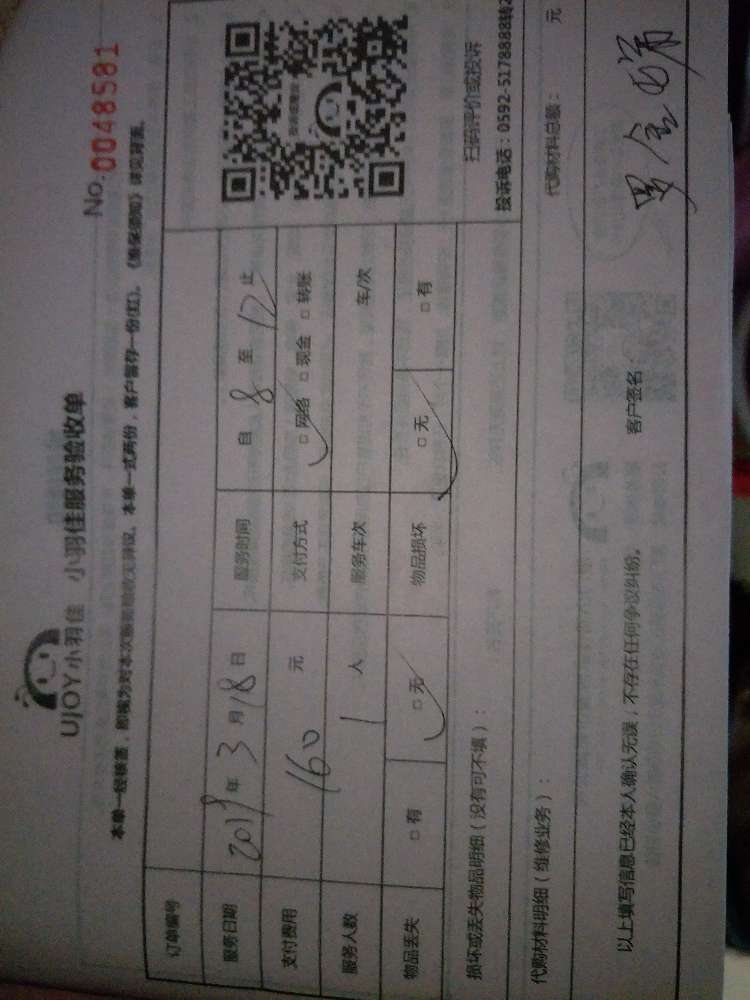 UJOY小羽佳 小羽佳服务验收单
No.0048581
本单一经签署，即视为对本次服务验收无异议。本单一式两份，客户留存一份(红)。《维保须知》详见背面。
订单编号
服务日期 2019年3月18日 服务时间 自 8 至 12 止
支付费用 160 元 支付方式 □网络 □现金 □转账
服务人数 1 人 服务车次 车/次
物品丢失 □有 □无 物品损坏 □无 □有
扫码评价或投诉
投诉电话：0592-5178888转2
损坏或丢失物品明细（没有可不填）：
代购材料明细（维修业务）： 代购材料总额： 元
以上填写信息已经本人确认无误，不存在任何争议纠纷。 客户签名：